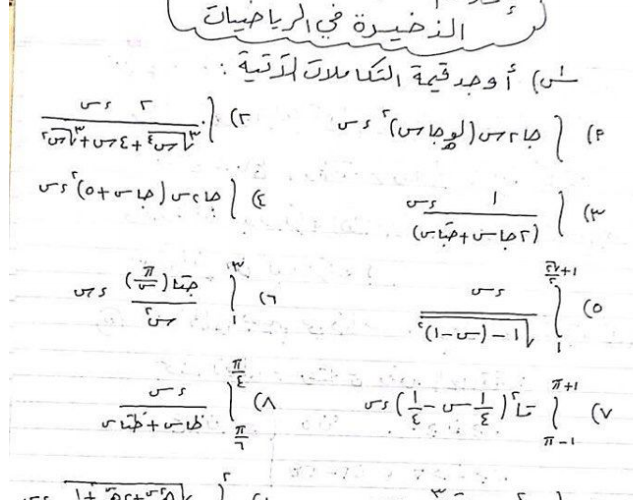 الذخيرة في الرياضيات
س) أوجد قيمة التكاملات الآتية :
١) ∫ جا٢س (لو_هـ جاس)^٢ ءس
٢) ∫ ٢ ءس / (∛س^٤ + ٤س + ∛س^٢)
٣) ∫ ١ ءس / (٢جاس + جتاس)
٤) ∫ جا٢س (جاس + ٥)^٢ ءس
٥) ∫_١^{١+√٢/٢} ءس / √(١ - (س-١)^٢)
٦) ∫_١^٣ جتا(π/س) / س^٢ ءس
٧) ∫_{١-π}^{١+π} قا^٢(١/٤ س - ١/٤) ءس
٨) ∫_{π/٦}^{π/٤} ءس / (ظاس + ظتاس)